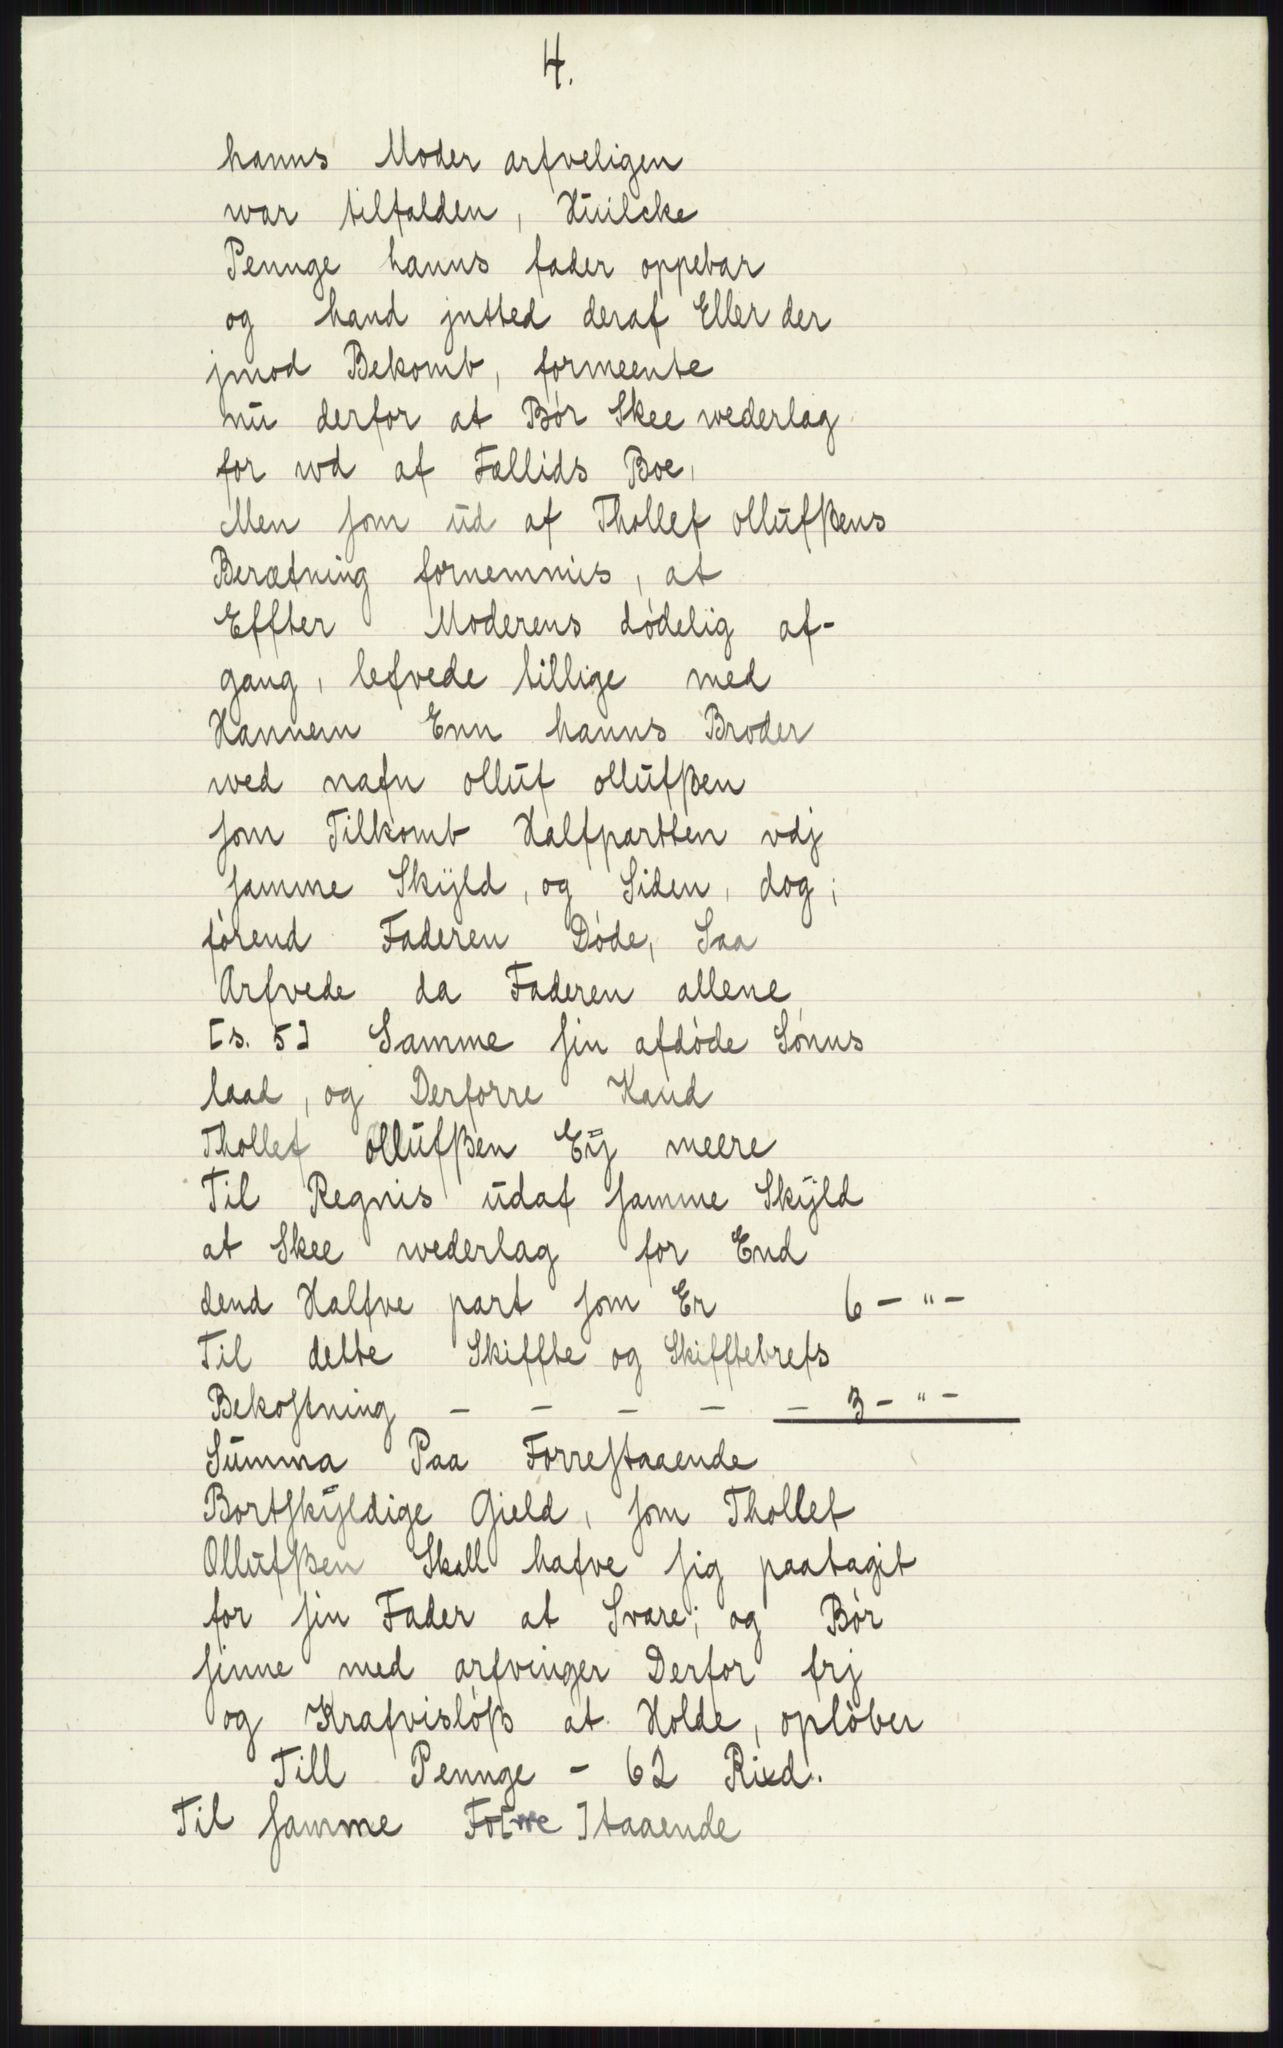 4.
hanns Moder arfveligen
war tilfalden, Huilcke
Pennge hanns fader oppebar
og hand jntted deraf Eller der
jmod Bekomb, formeente
nu derfor at Bør Skee wederlag
for wd af Fællids Boe,
Men som ud af Thollef ollufßens
Berætning fornemmis, at
Effter Moderens dødelig af-
gang, lefvede tillige med
Hannem Enn hanns Broder
wed nafn olluf ollufßen
som Tilkomb Halfpartten vdj
samme Skÿld, og Siden, dog;
førend Faderen Døde, Saa
Arfvede da Faderen allene
[s. 5] Samme sin afdøde Sønns
laad, og Derforre Kand
Thollef Ollufßen Eÿ meere
Til Regnis udaf samme Skÿld
at Skee wederlag for End
dend Halfve part som Er 6 - " -
Til dette Skiffte og Skifftebrefs
Bekostning - - - - - 3 - " -
Summa Paa Forrestaaende
Bortskÿldige Gield, som Thollef
Ollufßen Skall hafve sig paatagit
for sin Fader at Svare; og Bør
sinne med arfvinger Derfor frj
og Krafvisløß at Holde, opløber
Till Pennge - 62 Rixd.
Til samme Fo[rre]staaende